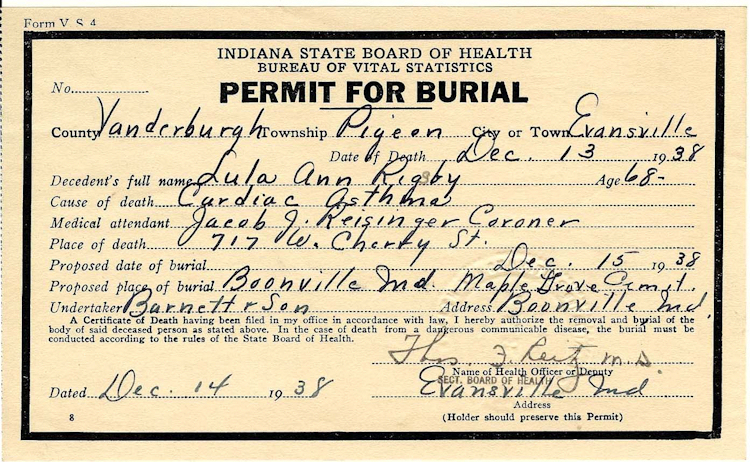 Form V. S. 4
INDIANA STATE BOARD OF HEALTH
BUREAU OF VITAL STATISTICS
No.
PERMIT FOR BURIAL
County Vanderburgh Township Pigeon City or Town Evansville
Date of Death Dec. 13 1938
Decedent's full name Lula Ann Rigsby Age 68-
Cause of death Cardiac Asthma
Medical attendant Jacob J. Reisinger Coroner
Place of death 717 W. Cherry St.
Proposed date of burial Dec. 15 1938
Proposed place of burial Boonville Ind Maple Grove Cemt.
Undertaker Barnett & Son Address Boonville Ind.
A Certificate of Death having been filed in my office in accordance with law, I hereby authorize the removal and burial of the
body of said deceased person as stated above. In the case of death from a dangerous communicable disease, the burial must be
conducted according to the rules of the State Board of Health.
Thos. J. Reitz M.D.
Name of Health Officer or Deputy
SECT. BOARD OF HEALTH
Dated Dec. 14 1938 Evansville Ind
Address
8 (Holder should preserve this Permit)